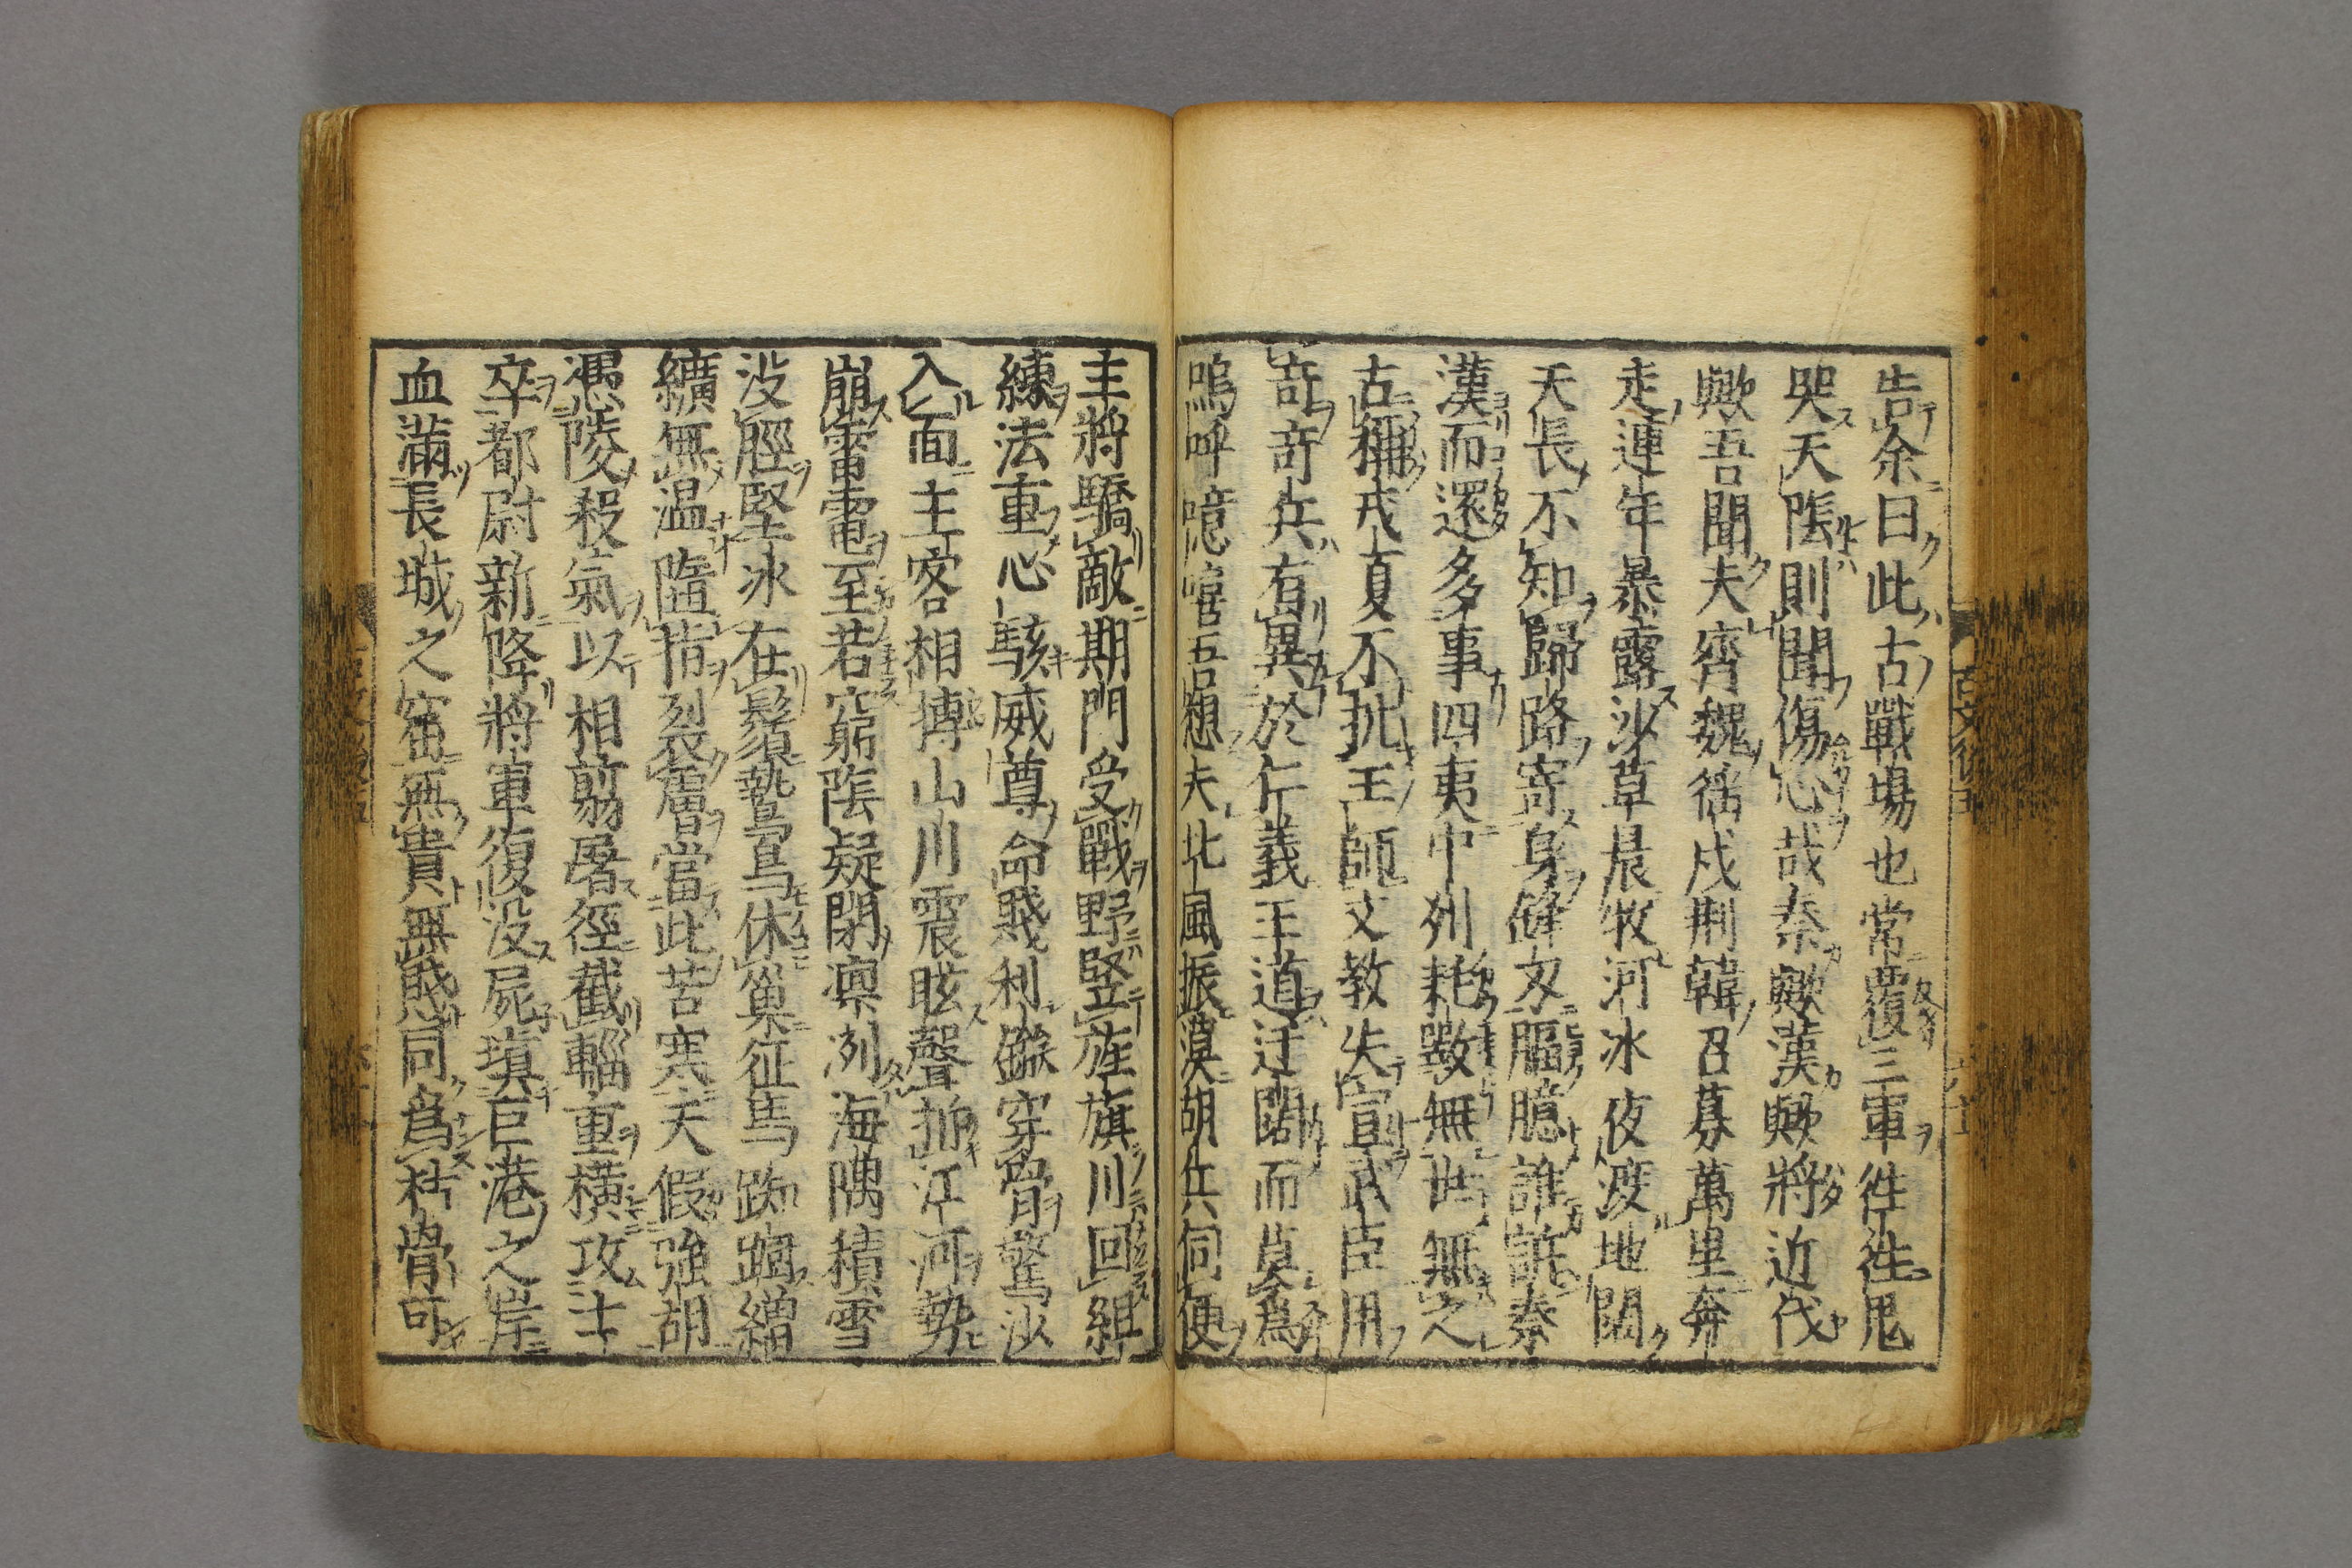 告余曰此古戰場也常覆三軍徃徃鬼
哭天隂則聞傷心哉秦歟漢歟將近代
歟吾聞夫齊魏徭戍荆韓召募萬里奔
走連年暴露沙草晨牧河冰夜渡地闊
天長不知歸路寄身鋒刃腷臆誰訴秦
漢而還多事四夷中州耗斁無世無之
古稱戎夏不抗王師文教失宣武臣用
竒竒兵有異於仁義王道迂闊而莫爲
嗚呼噫嘻吾想夫北風振漠胡兵伺便
主將驕敵期門受戰野竪旄旗川回組
練法重心駭威尊命賤利鏃穿骨驚沙
入面主客相搏山川震眩聲拍江河勢
崩雷電至若窮隂凝閉凛冽海隅積雪
没脛堅冰在鬚鷙鳥休巢征馬踟蹰繒
纊無温隨指裂膚當此苦寒天假強胡
憑陵殺氣以相剪屠徑截輜重橫攻士
卒都尉新降將軍復没屍塡巨港之岸
血滿長城之窟無貴無賤同爲枯骨可
古文後五